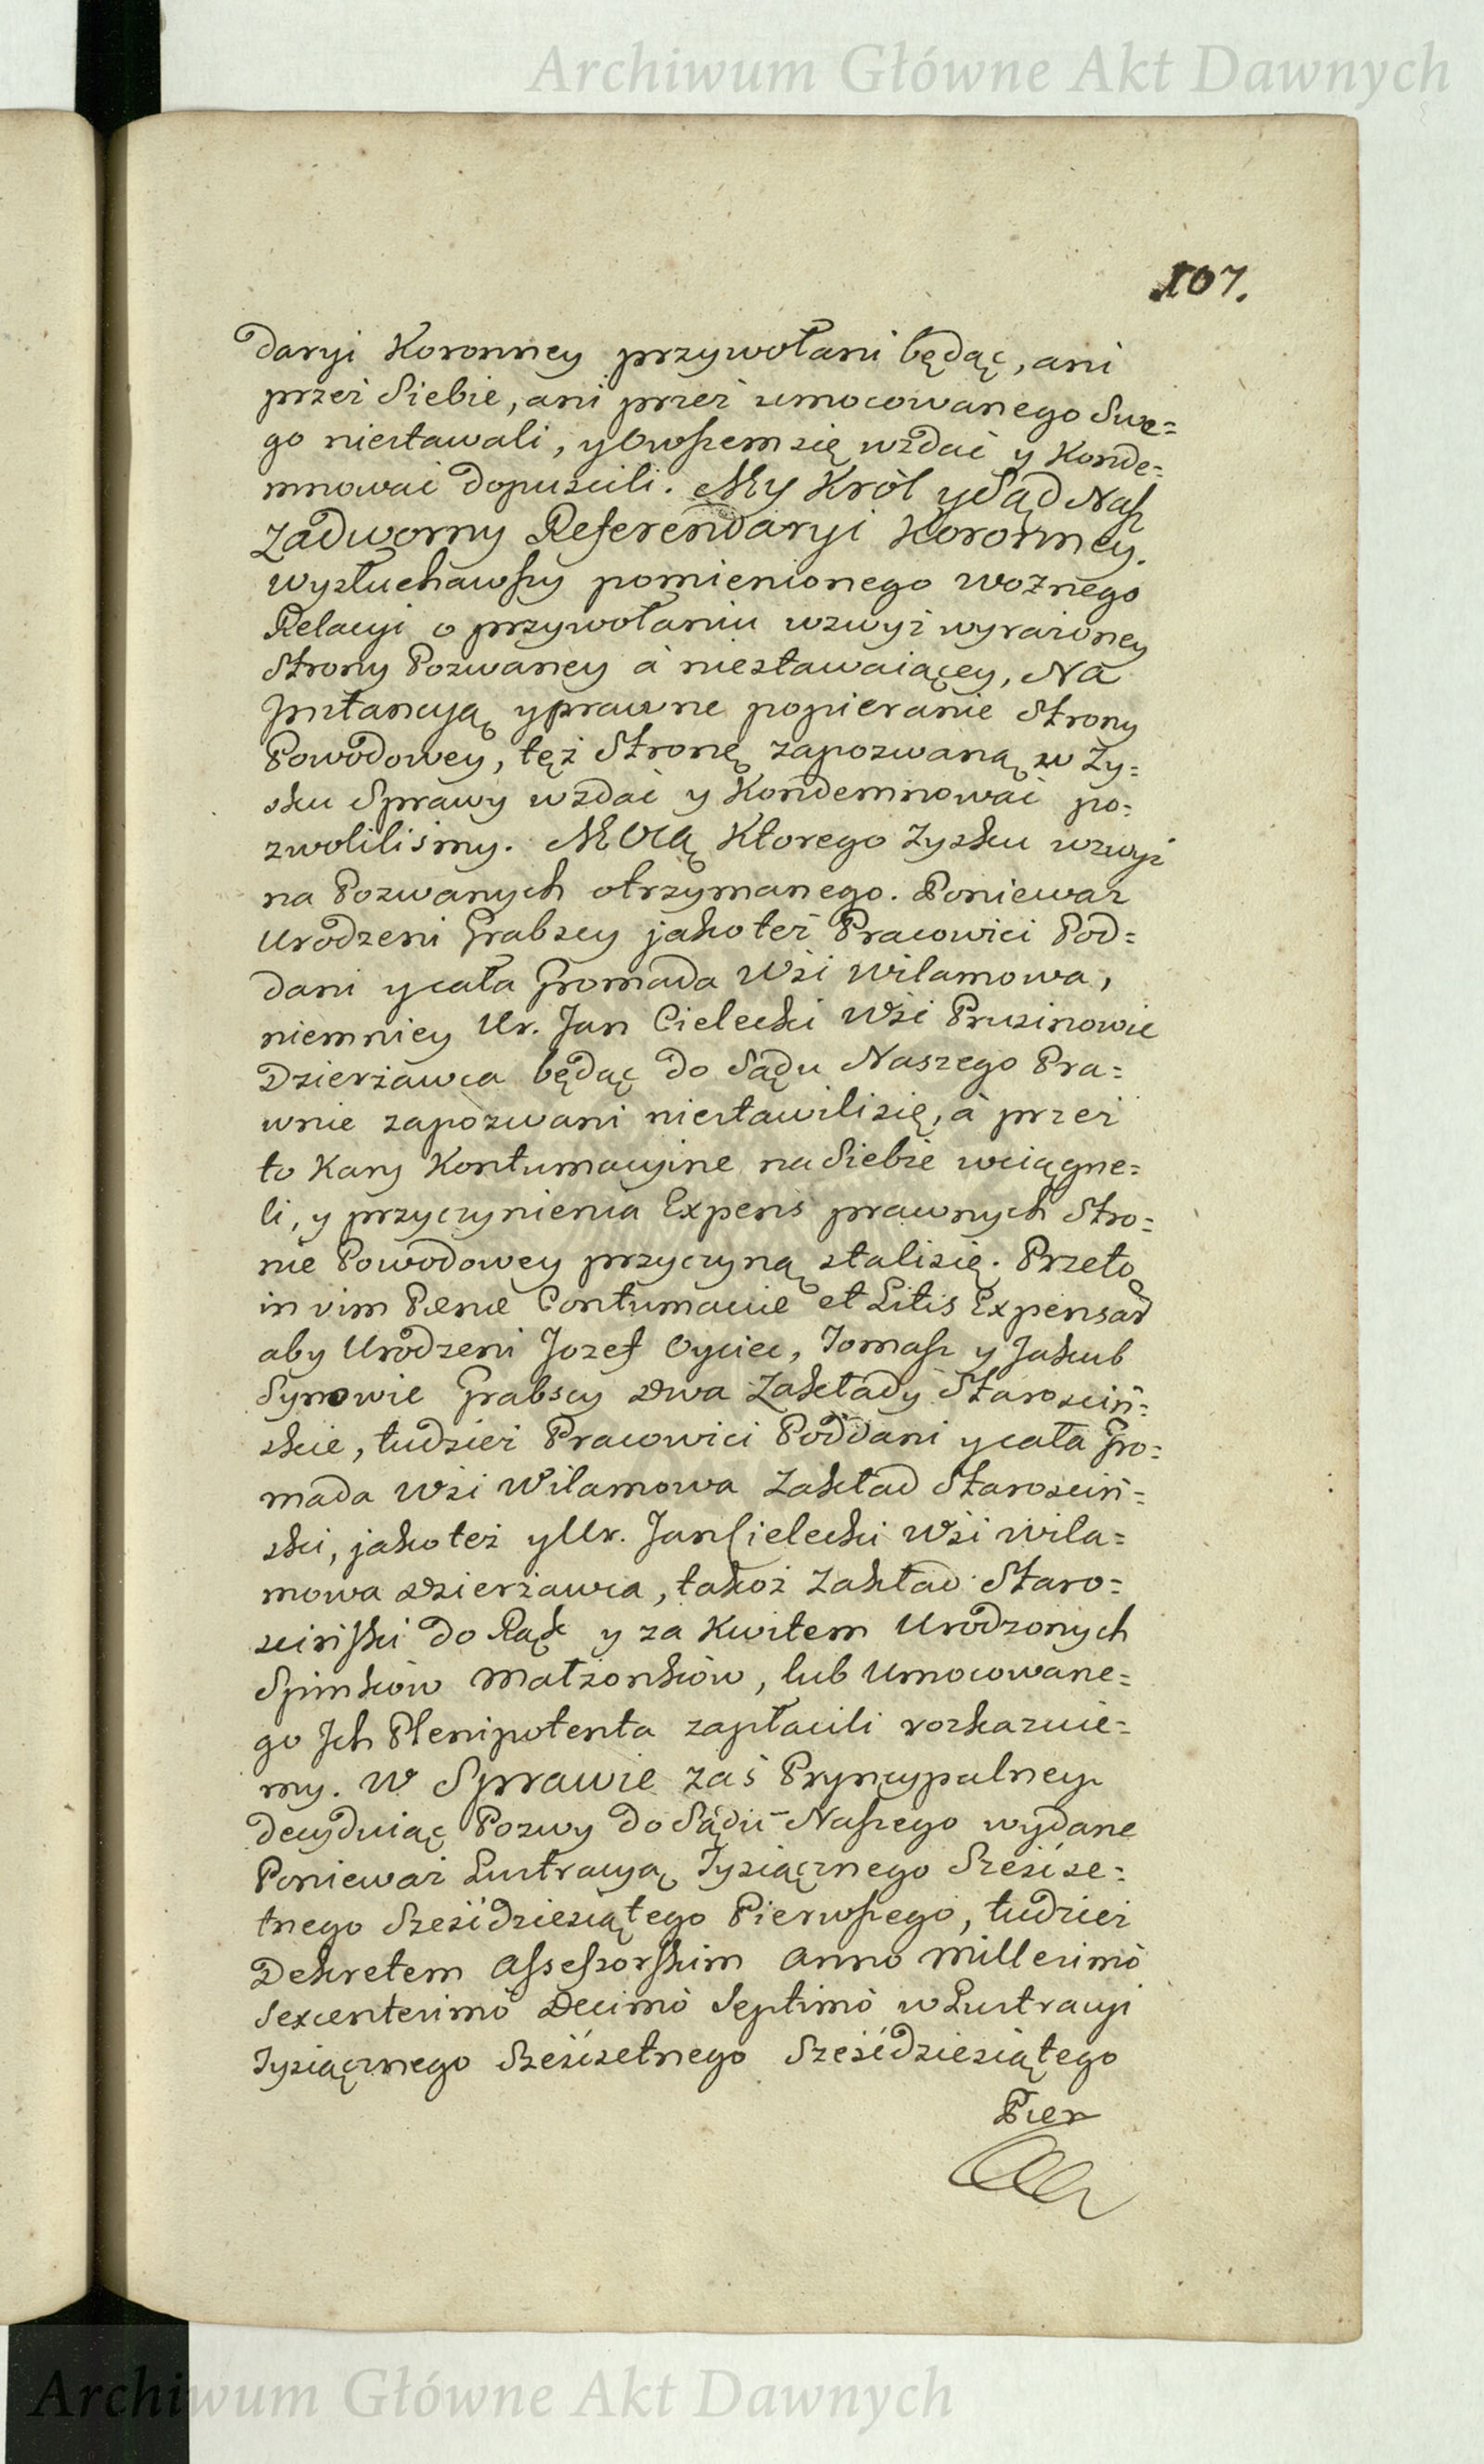 Archiwum Główne Akt Dawnych
107.
daryi Koronney przywołani będąc, ani
przez Siebie, ani przez umocowanego Swe=
go niestawali, y Owszem się wzdać y Konde=
mnować dopuścili. My Król y Sąd Nasz
Zadworny Referendaryi Koronney.
wysłuchawszy pomienionego woznego
Relacyi o przywołaniu wzwyż wyrażoney
Strony Pozwaney à niestawaiącey, Na
Instancyą y prawne popieranie Strony
Powodowey, tęż Stronę zapozwaną w Zy=
sku Sprawy wzdać y Kondemnować po=
zwoliliśmy. Mocą Ktorego Zysku wzwyż
na Pozwanych otrzymanego. Ponieważ
Urodzeni Grabscy jako też Pracowici Pod=
dani y cała Gromada Wsi Wilamowa,
niemniey Ur. Jan Cielecki Wsi Prusinowic
Dzierżawca będąc do Sądu Naszego Pra=
wnie zapozwani niestawili się, à przez
to Kary Kontumacyine na Siebie wciągne=
li, y przyczynienia Expens prawnych Stro=
nie Powodowey przyczyną stali się. Przeto
in vim Pænæ Contumaciæ et Litis Expensar
aby Urodzeni Jozef Oyciec, Tomasz y Jakub
Synowie Grabscy dwa Zakłady Starościń=
skie, tudzież Pracowici Poddani y cała Gro=
mada Wsi Wilamowa Zakład Starościń=
ski, jako też y Ur. Jan Cielecki Wsi Wila=
mowa dzierżawca, takoż Zakład Staro=
ściński do Rąk y za Kwitem Urodzonych
Spinków Małżonków, lub Umocowane=
go Ich Plenipotenta zapłacili rozkazuie=
my. W Sprawie zaś Pryncypalney
decyduiąc Pozwy do Sądu Naszego wydane
Ponieważ Lustracyą Tysiącznego Sześćse=
tnego Sześćdziesiątego Pierwszego, tudzież
Dekretem Assessorskim Anno Millesimo
Sexcentesimo Decimo Septimo w Lustracyi
Tysiącznego Sześćsetnego Sześćdziesiątego
Pier
Archiwum Główne Akt Dawnych